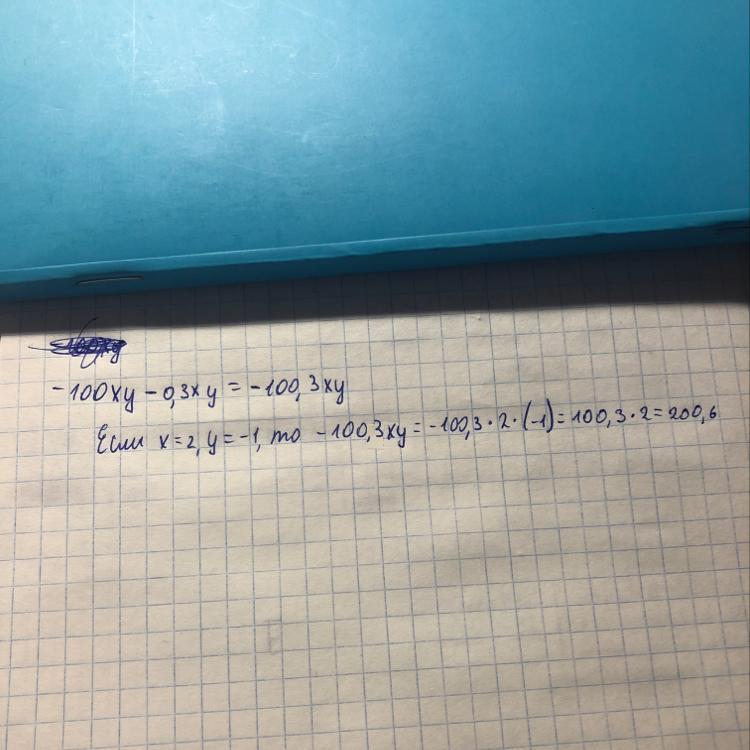 -100xy - 0,3xy = -100,3xy
Если x=2, y=-1, то -100,3xy = -100,3·2·(-1) = 100,3·2 = 200,6